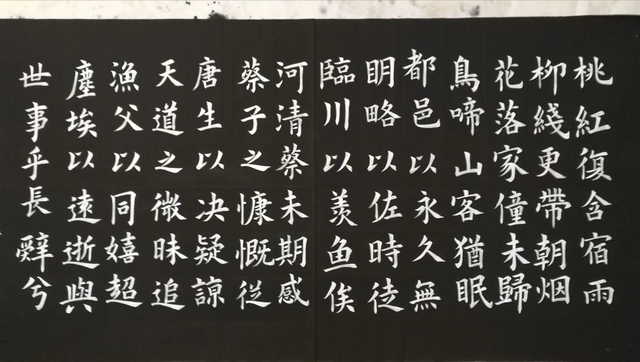 桃紅復含宿雨
柳綫更帶朝烟
花落家僮未歸
鳥啼山客猶眠
都邑以永久無
眀略以佐時徒
臨川以羡鱼俟
河清蔡未期感
蔡子之慷慨従
唐生以决疑諒
天道之微昧追
漁父以同嬉超
塵埃以遠逝與
世事乎長辭兮